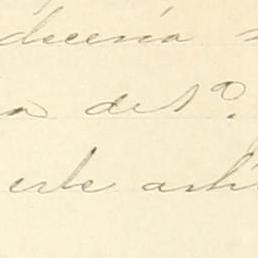 decería
a de 1º.
este artí